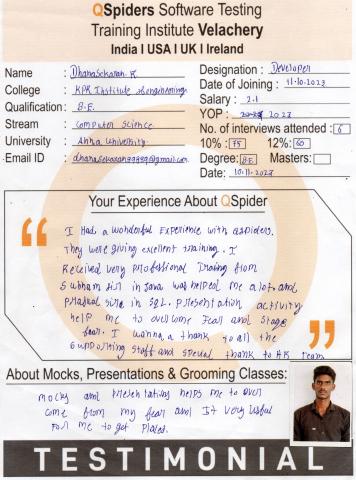 QSpiders Software Testing
Training Institute Velachery
India I USA I UK I Ireland
Name : Dhanasekaran.R
Designation : Developer
College : KPR Institute of engineering
Date of Joining : 11.10.2023
Salary : 2.1
Qualification : B.E.
YOP : 2023
Stream : Computer Science
No. of interviews attended : 6
University : Anna University
10% : 75 12% : 60
Email ID :
Degree: B.E Masters:
Date: 10.11.2023
Your Experience About QSpider
I Had a wondorful Experience with aspiders.
They were giving excellent training. I
Received very professional Traing from
Subham sir in Java was helped me alot and
sir in SQL. Presentation activity
help me to overcome Fear and stage
fear. I wanna thank to all the
Supporting staff and special thank to HR Team
About Mocks, Presentations & Grooming Classes:
Mocks and Presentations helps me to over
come from my fear and It very useful
For me to get Placed.
TESTIMONIAL